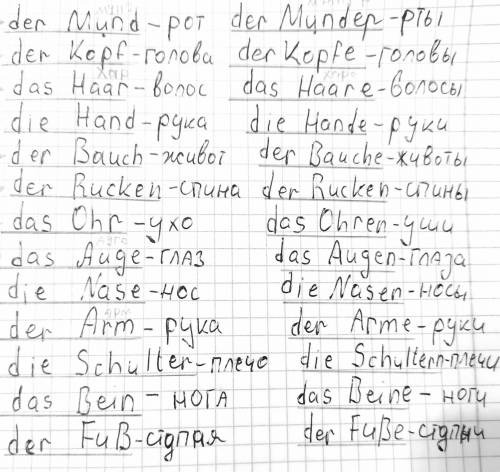 der Mund - рот der Munder - рты
der Kopf - голова der Kopfe - головы
das Haar - волос das Haare - волосы
die Hand - рука die Hande - руки
der Bauch - живот der Bauche - животы
der Rucken - спина der Rucken - спины
das Ohr - ухо das Ohren - уши
das Auge - глаз das Augen - глаза
die Nase - нос die Nasen - носы
der Arm - рука der Arme - руки
die Schulter - плечо die Schultern - плечи
das Bein - нога das Beine - ноги
der Fuß der Fuße